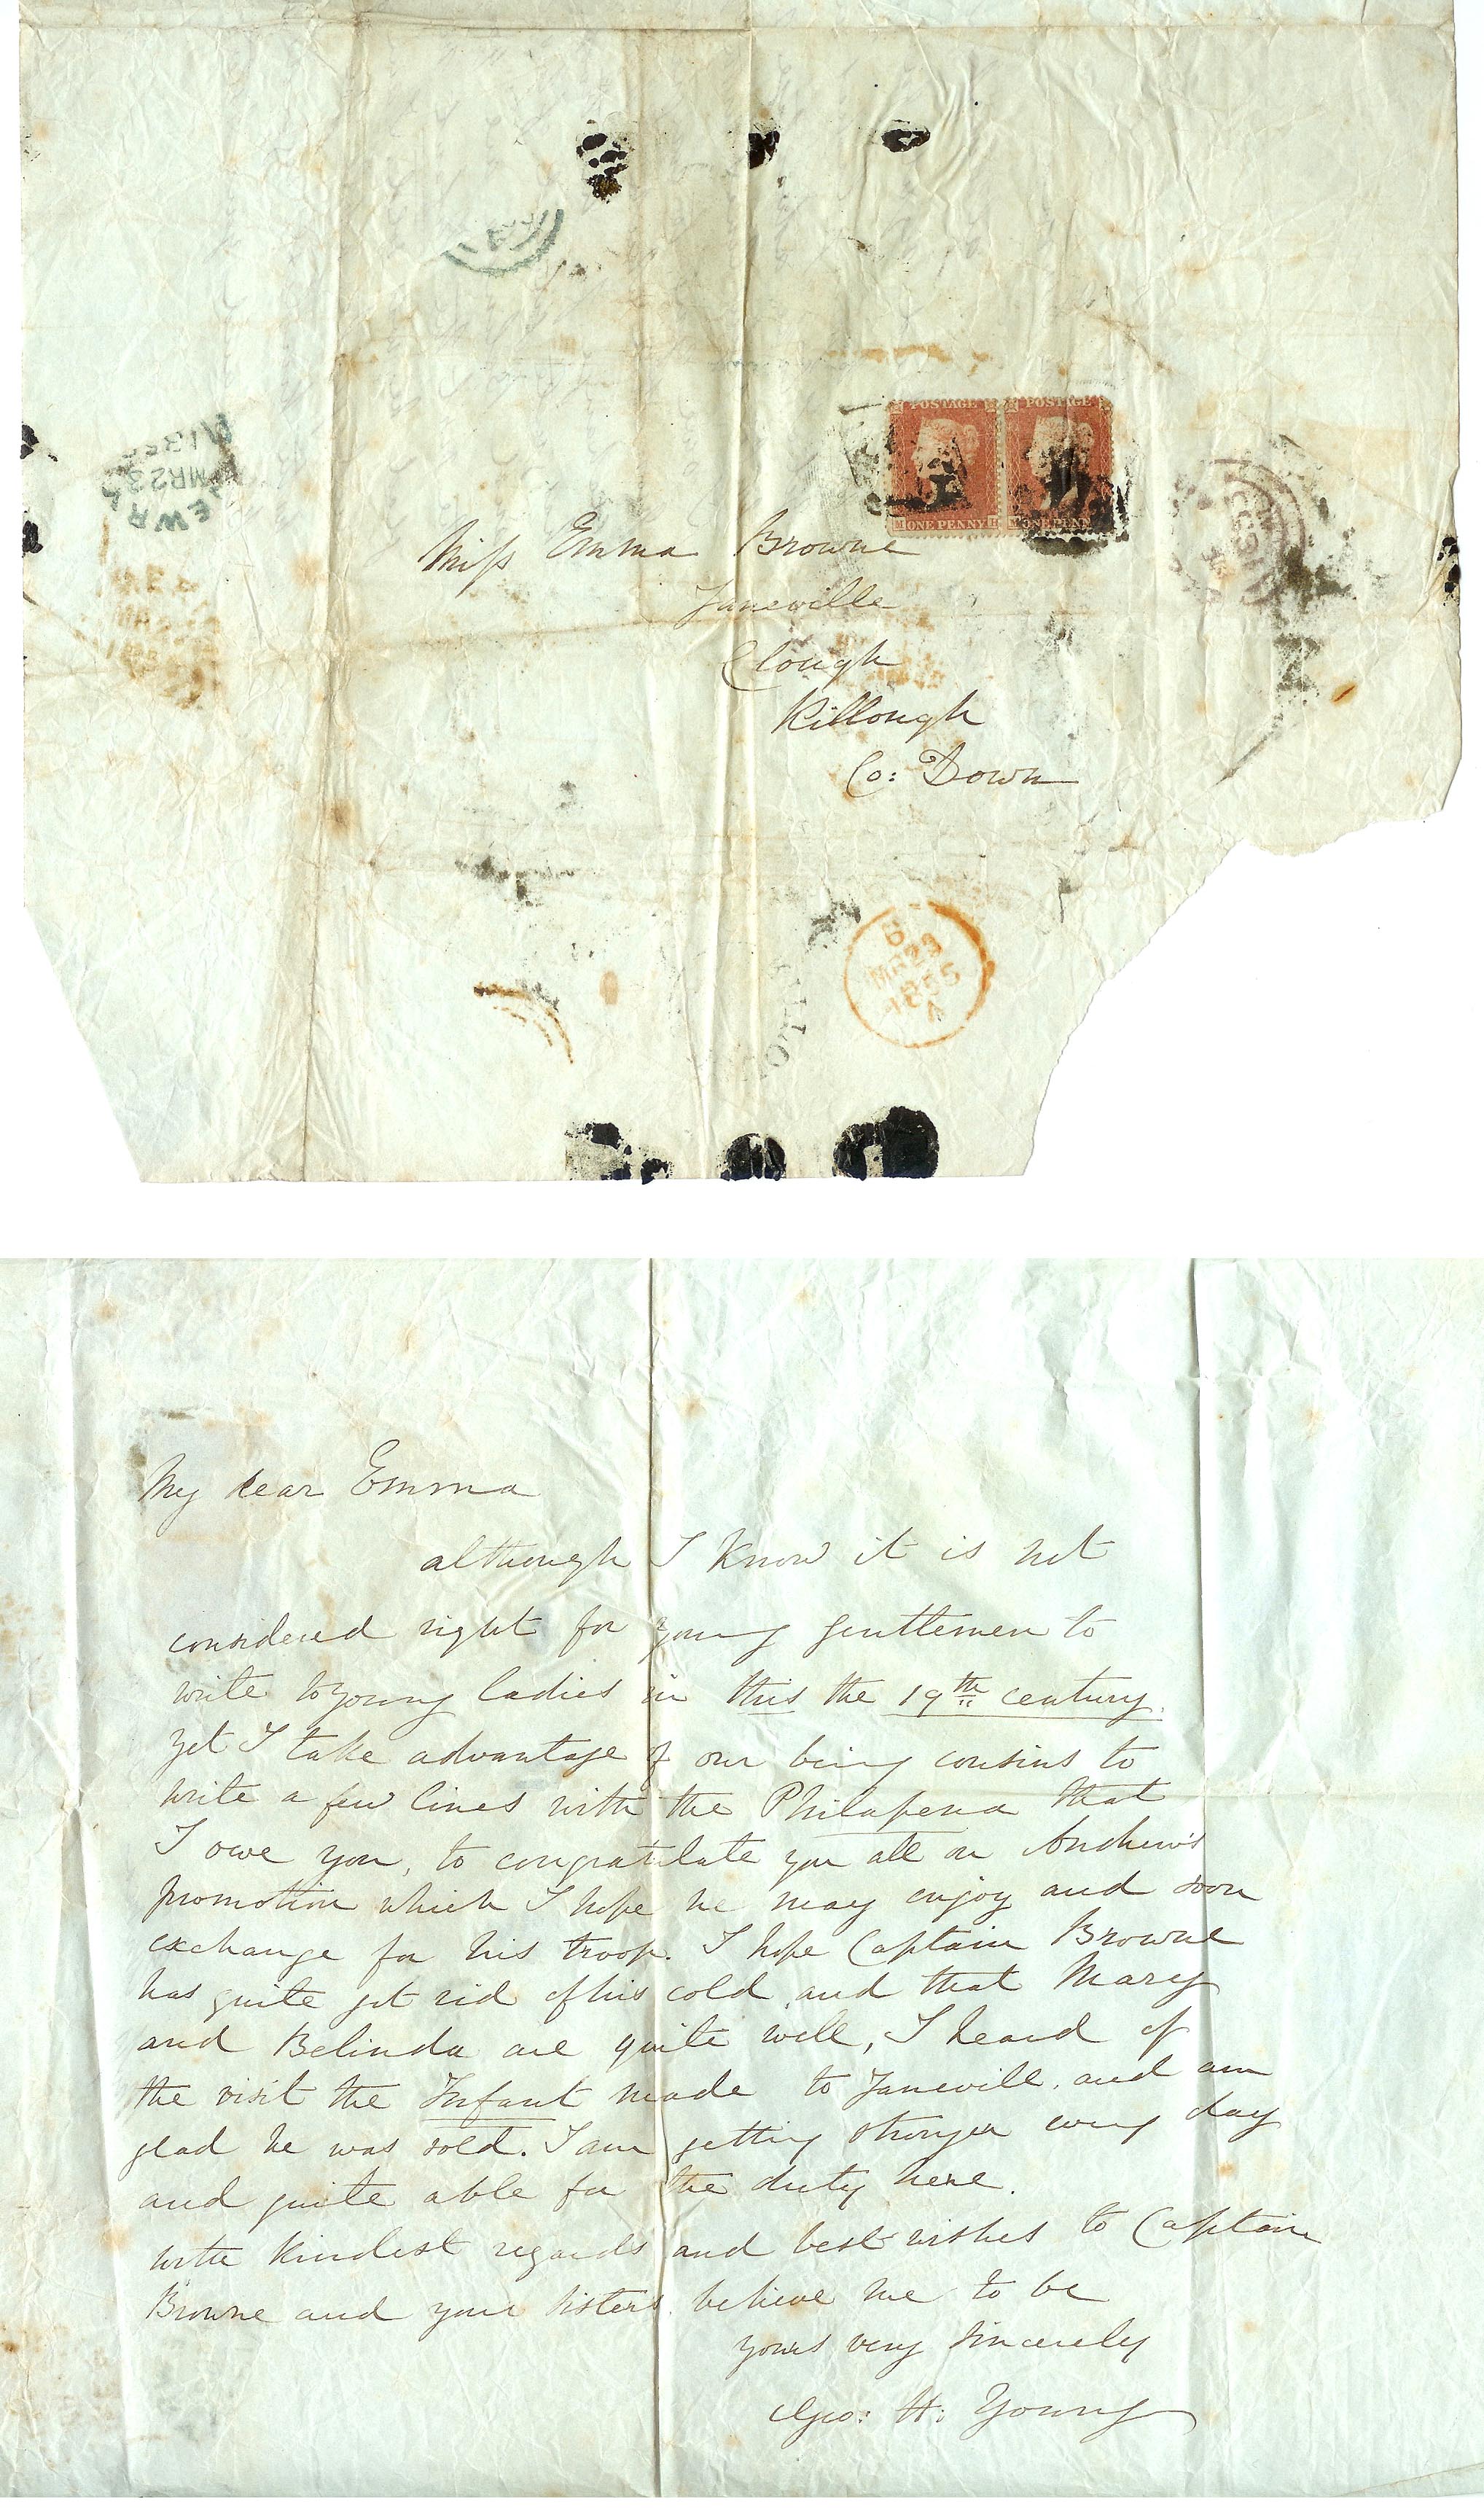 POSTAGE POSTAGE
ONE PENNY ONE PENNY
MR23
Miss Emma Browne
Janeville
Clough
Killough
Co: Down
B
MR23
1855
A
My dear Emma
although I know it is not
considered right for young gentlemen to
write to young ladies in this the 19th century.
yet I take advantage of our being cousins to
write a few lines with the Philapena that
I owe you, to congratulate you all on Andrew's
promotion which I hope he may enjoy and soon
exchange for his troop. I hope Captain Browne
has quite got rid of his cold, and that Mary
and Belinda are quite well, I heard of
the visit the Infant made to Janevill. and am
glad he was sold. I am getting stronger every day
and quite able for the duty here.
With kindest regards and best wishes to Captain
Browne and your sisters believe me to be
yours very sincerely
Geo: H: Young